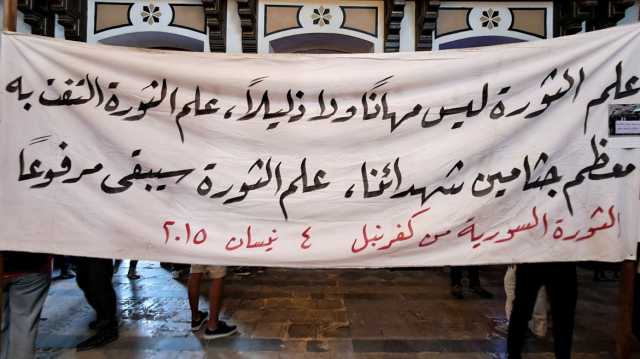 علم الثورة ليس مهانًا ولا ذليلاً، علم الثورة التفت به
معظم جثامين شهدائنا، علم الثورة سيبقى مرفوعاً
الثورة السورية من كفرنبل ٤ نيسان ٢٠١٥